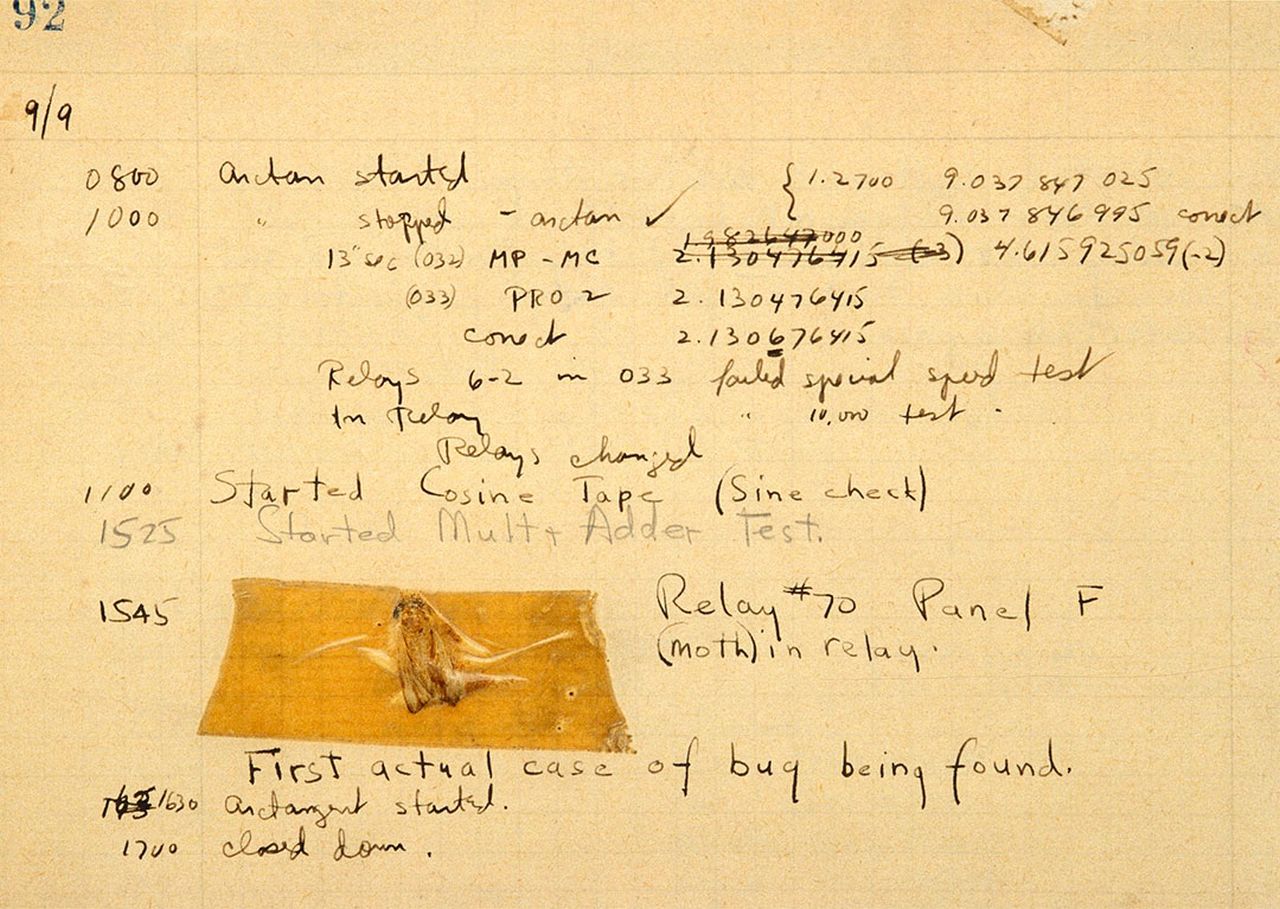 92
9/9
0800 Arctan started { 1.2700 9.037 847 025
1000 " stopped - arctan ✓ 9.037 846 995 conect
13" sec (032) MP - MC 2.130476415 (-3) 4.615925059(-2)
(033) PRO 2 2.130476415
conect 2.130676415
Relays 6-2 in 033 failed special speed test
In Relay " 10,000 test .
Relays changed
1100 Started Cosine Tape (Sine check)
1525 Started Mult+ Adder Test.
1545 Relay #70 Panel F
(moth) in relay.
First actual case of bug being found.
1630 Arctangent started.
1700 closed down .